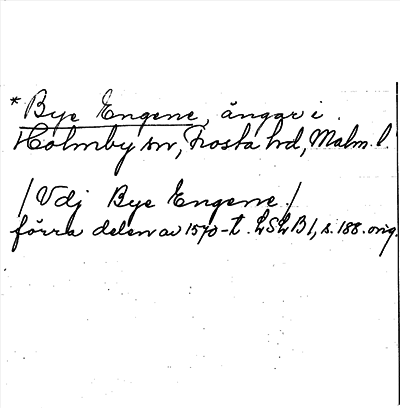 * Bye Engene, ängar i
Holmby sn, Frosta hd, Malm. l.
/Vdj Bye Engene./
förra delen av 1570-t. LSLB 1, s. 188. orig.